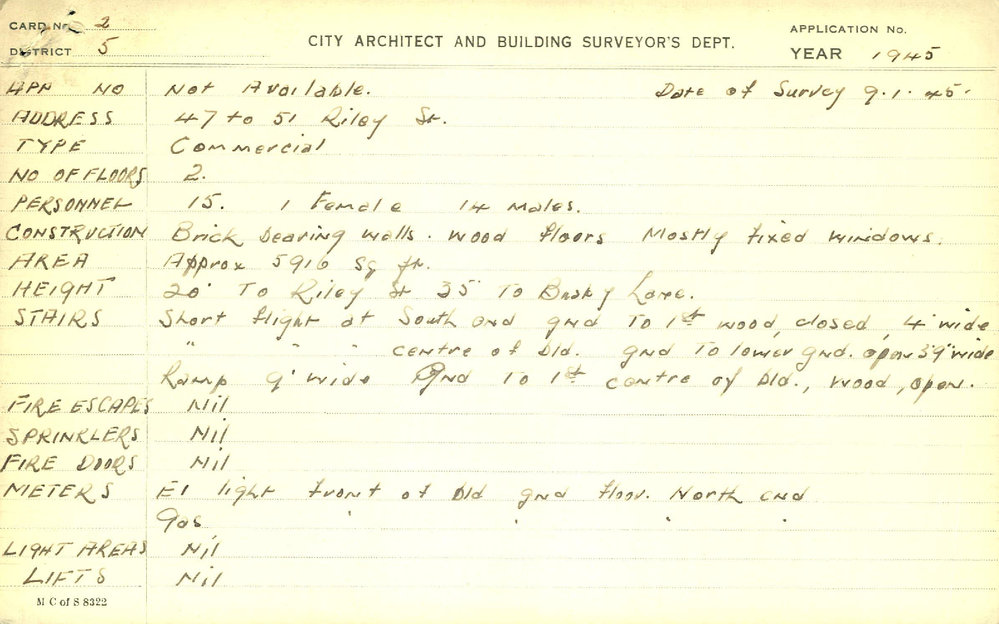 CARD No. 2
DISTRICT 5
CITY ARCHITECT AND BUILDING SURVEYOR'S DEPT.
APPLICATION No.
YEAR 1945
APN NO Not Available. Date of Survey 9.1.45.
ADDRESS 47 to 51 Riley St.
TYPE Commercial
NO OF FLOORS 2.
PERSONNEL 15. 1 Female 14 Males.
CONSTRUCTION Brick bearing walls. Wood floors Mostly fixed windows.
AREA Approx 5910 Sq ft.
HEIGHT 20' To Riley St 35' To Busby Lane.
STAIRS Short flight at South end gnd To 1st wood, closed, 4' wide
" " " centre of bld. gnd To lower gnd. open 3'9" wide
Ramp 9' wide Gnd To 1st centre of bld., wood, open.
FIRE ESCAPES Nil
SPRINKLERS Nil
FIRE DOORS Nil
METERS El light front of bld gnd floor. North end
Gas " " " "
LIGHT AREAS Nil
LIFTS Nil
M C of S 8322